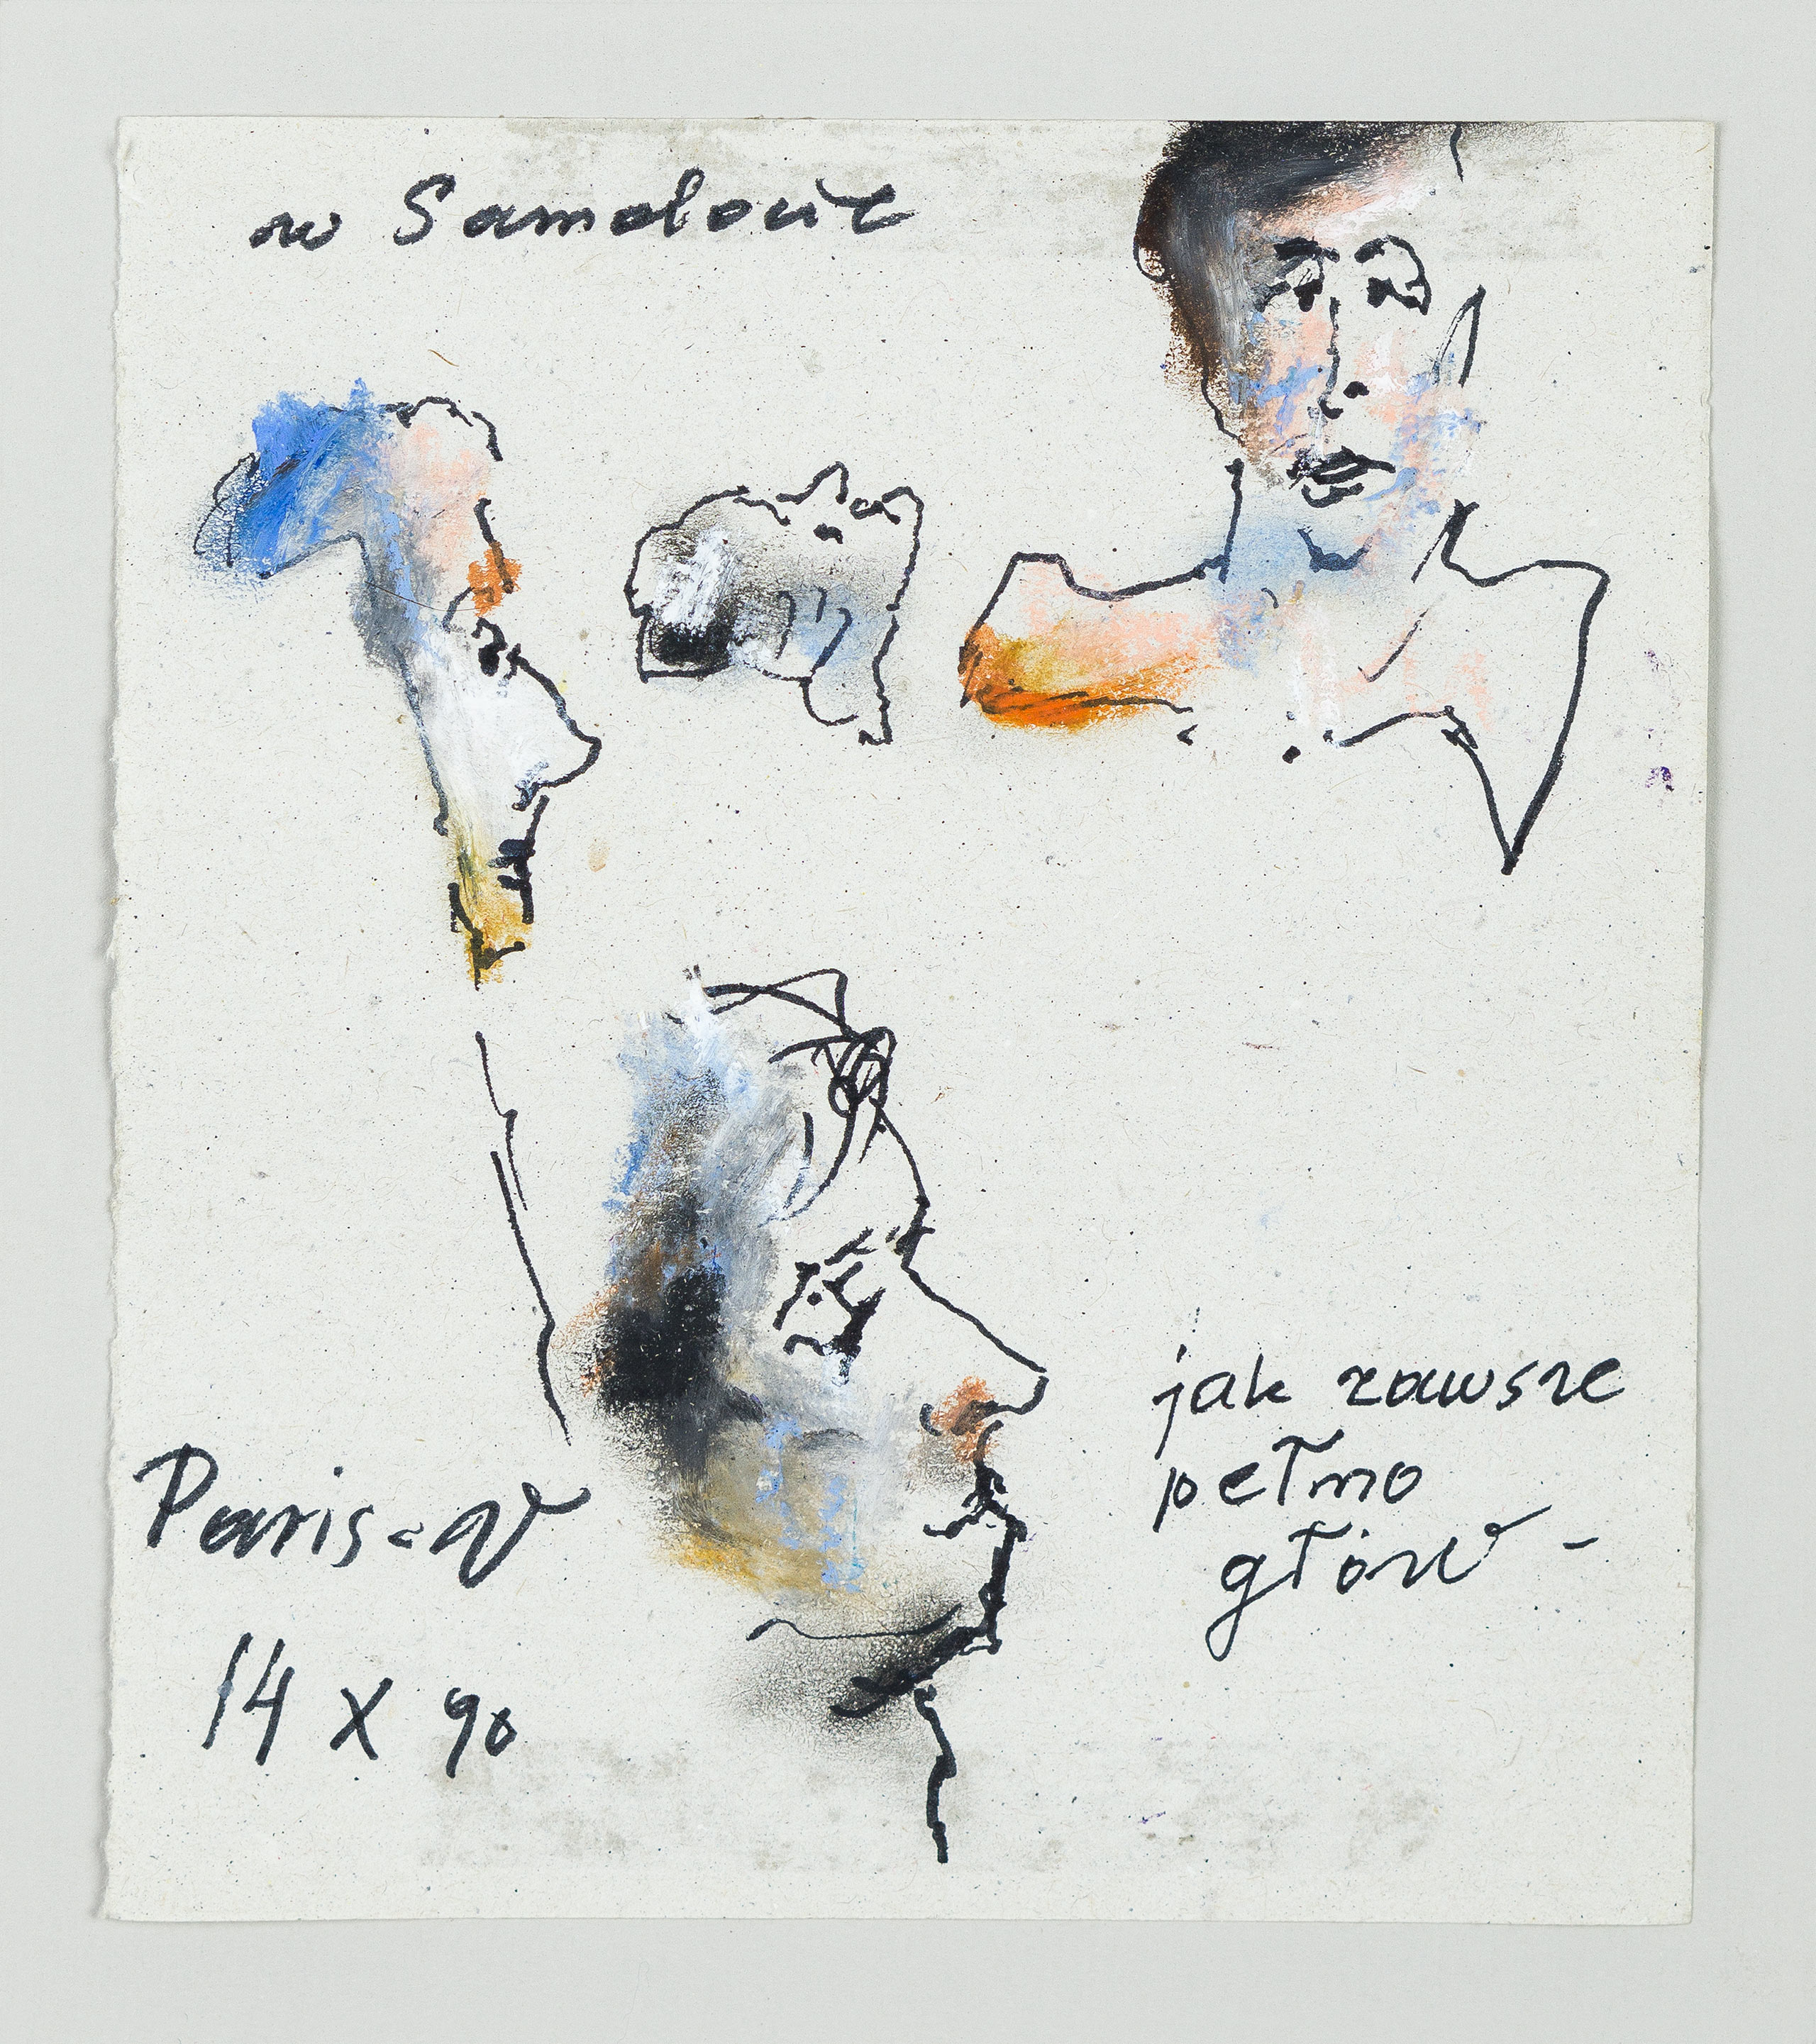 w Samolocie
jak zawsze
pełno
głów -
Paris-W
14 X 90